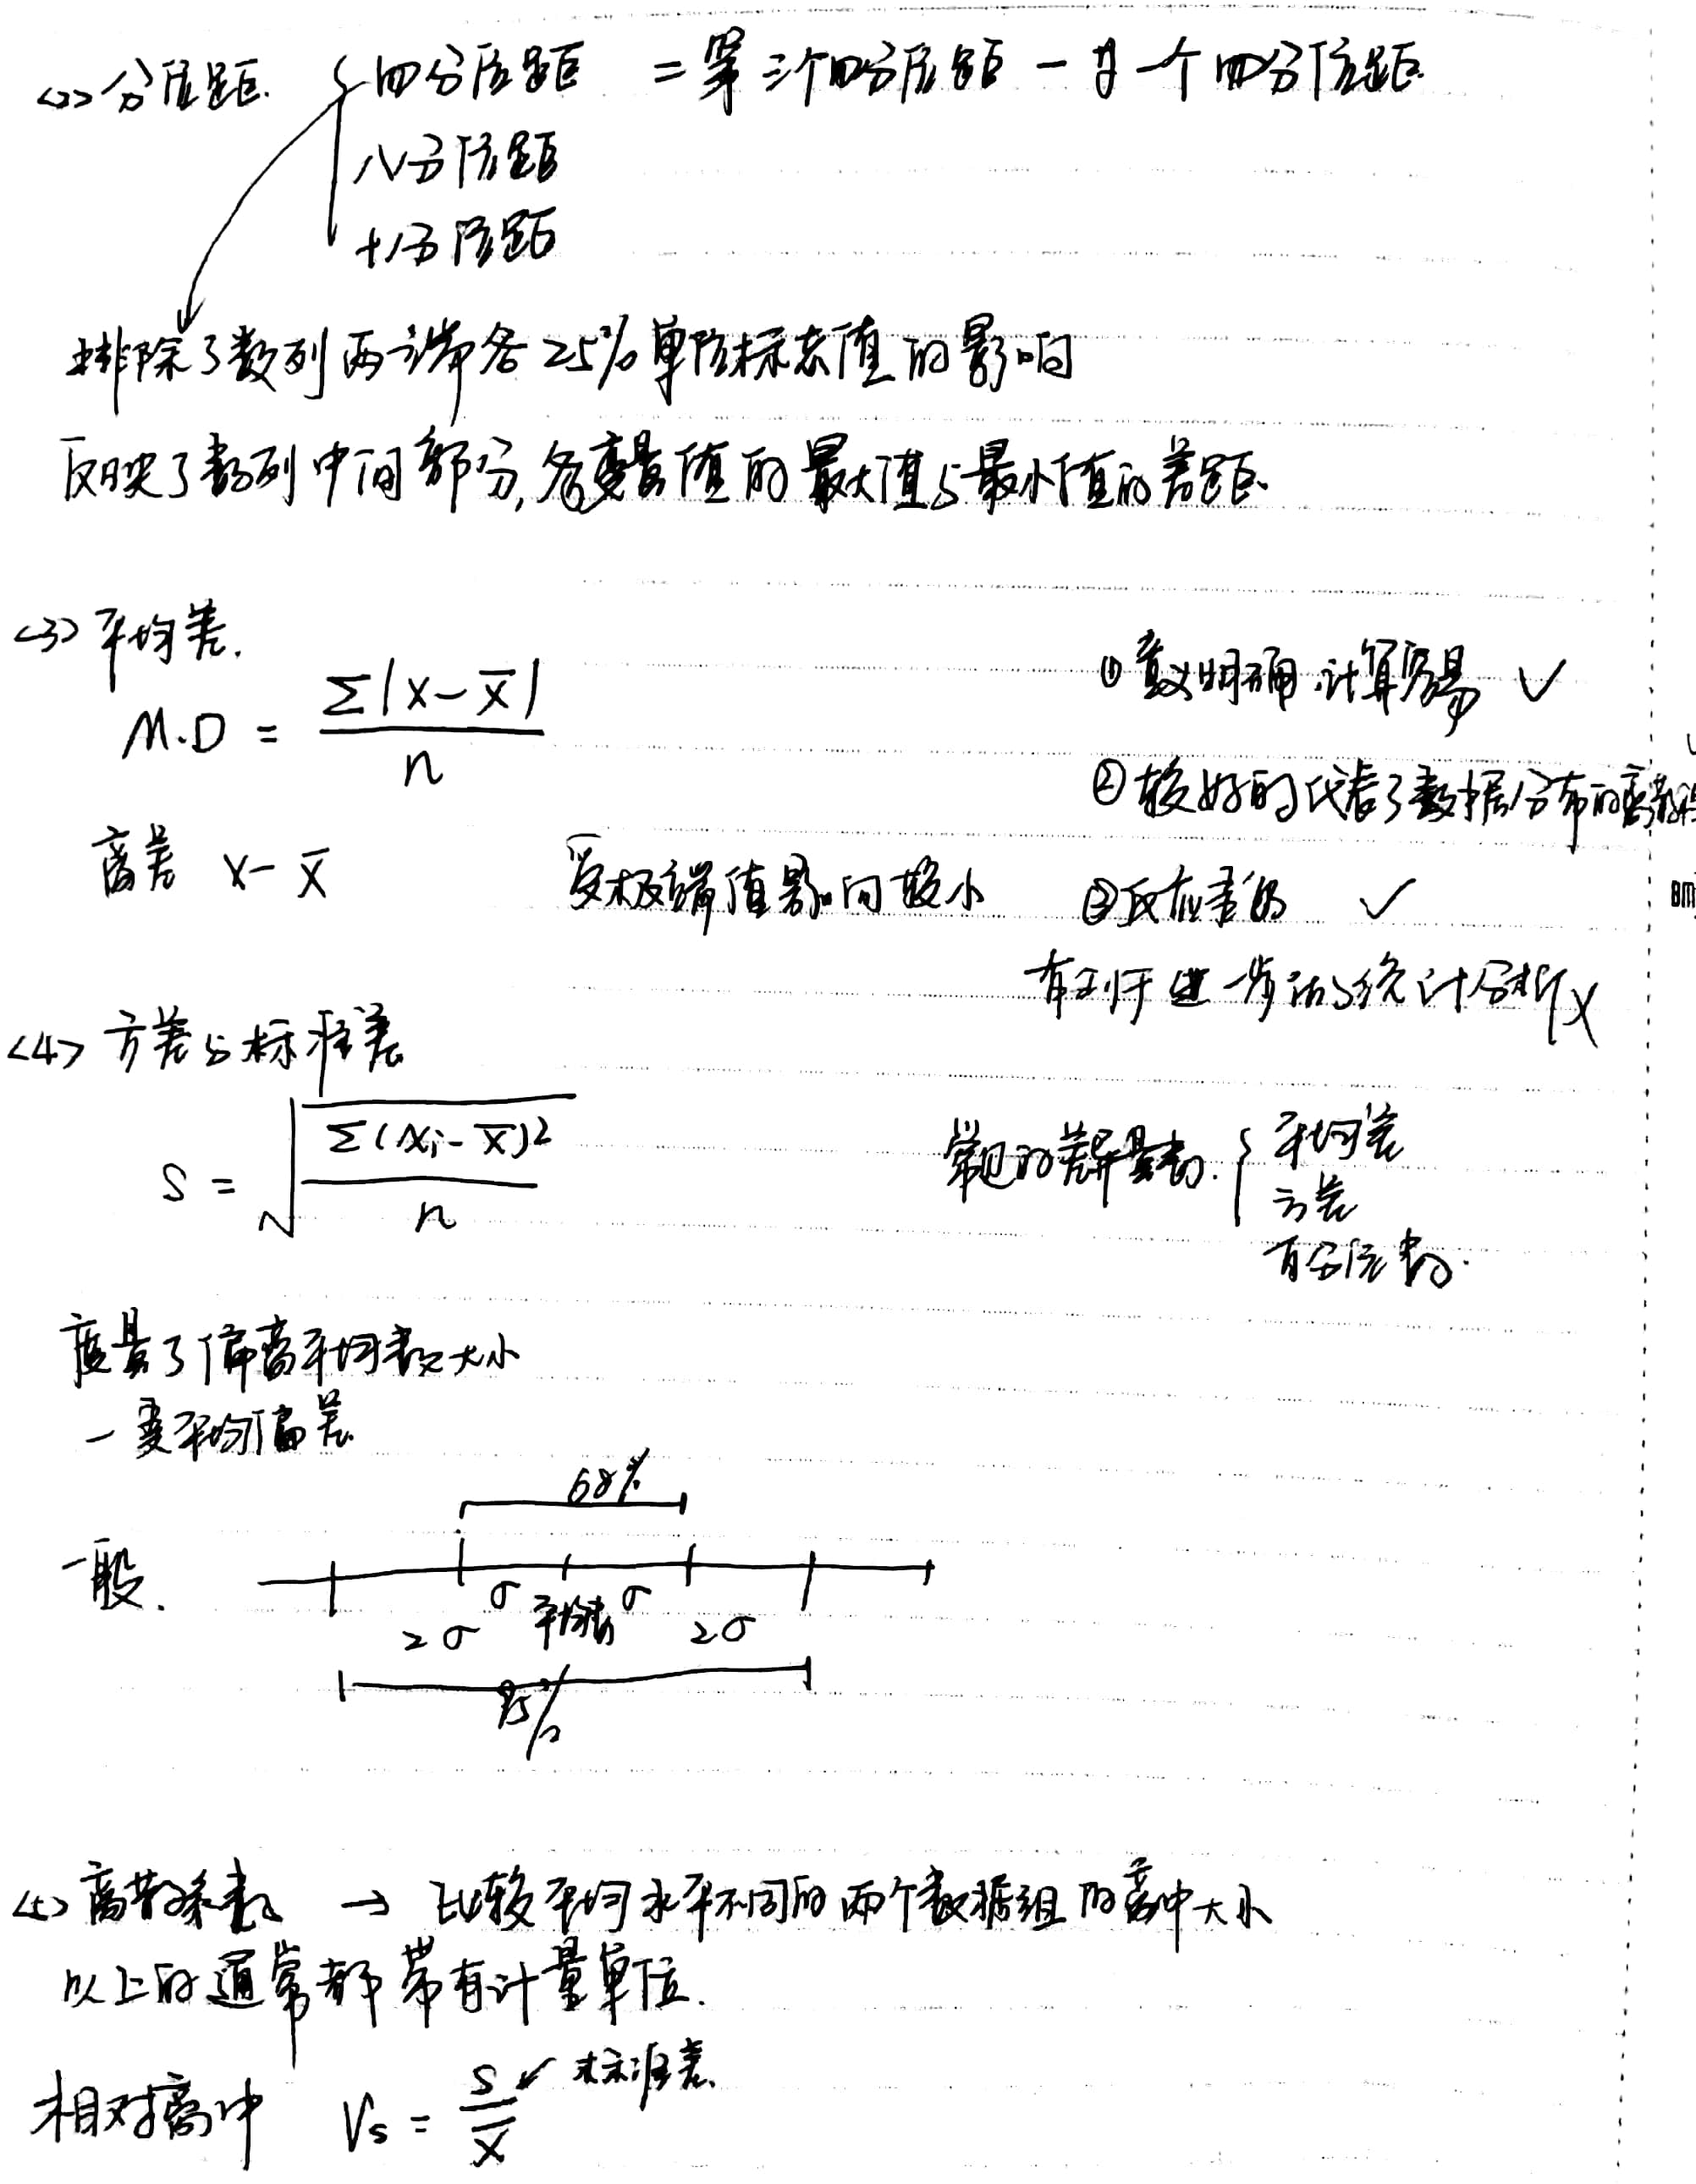 <2> 分位距. { 四分位距 = 第三个四分位距 - 第一个四分位距
八分位距
十分位距
排除了数列两端各25%单位标志值的影响
反映了数列中间部分,各变量值的最大值与最小值的差距.
<3> 平均差.
M.D = Σ|x-x̅| / n
① 意义明确.计算容易 ✓
② 较好的代表了数据分布的离散程
离差 x-x̅
受极端值影响较小
③反应灵敏 ✓
有利于进一步的统计分析 X
<4> 方差与标准差
S = √(Σ(xᵢ-x̅)² / n)
常见的差异量数. { 平均差
方差
百分位数.
度量了偏离平均数大小
一 平均偏差
68%
一般.
σ 平均数 σ
2σ 2σ
95%
<5> 离散系数 → 比较平均水平不同的两个数据组的离中大小
以上的通常都带有计量单位.
相对离中 Vs = S / x̅ ↙ 标准差.